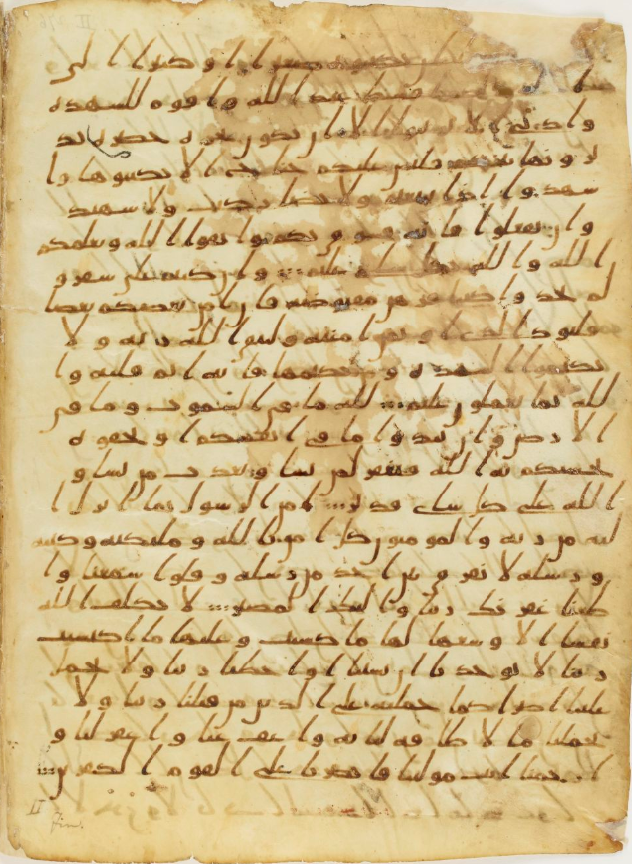 تكتبوه صغيرا او كبيرا الى
اقسط عند الله واقوم للشهدة
وادنى الا ترتابوا الا ان تكون تجرة حضرة تد
يرونها بينكم فليس عليكم جناح الا تكتبوها وا
شهدوا اذا تبايعتم ولا يضار كتب ولا شهيد
وان تفعلوا فانه فسوق بكم واتقوا الله ويعلمكم
الله والله بكل شي عليم وان كنتم على سفر و
لم تجدوا كتبا فرهن مقبوضة فان امن بعضكم بعضا
فليود الذي اوتمن امنته وليتق الله ربه ولا
تكتموا الشهدة ومن يكتمها فانه اثم قلبه وا
لله بما تعملون عليم لله ما في السموت وما في
الارض وان تبدوا ما في انفسكم او تخفوه
يحسبكم به الله فيغفر لمن يشا ويعذب من يشا و
الله على كل شي قدير امن الرسول بما انزل ا
ليه من ربه والمومنون كل امن بالله وملئكته وكتبه
ورسله لا نفرق بين احد من رسله وقلوا سمعنا وا
طعنا غفرنك ربنا واليك المصير لا يكلف الله
نفسا الا وسعها لها ما كسبت وعليها ما اكتسبت
ربنا لا توخذنا ان نسينا او اخطانا ربنا ولا تحمل
علينا اصرا كما حملته على الذين من قبلنا ربنا ولا
تحملنا ما لا طاقة لنا به واعف عنا واغفر لنا و
ارحمنا انت مولنا فانصرنا على القوم الكفرين
II
fin.